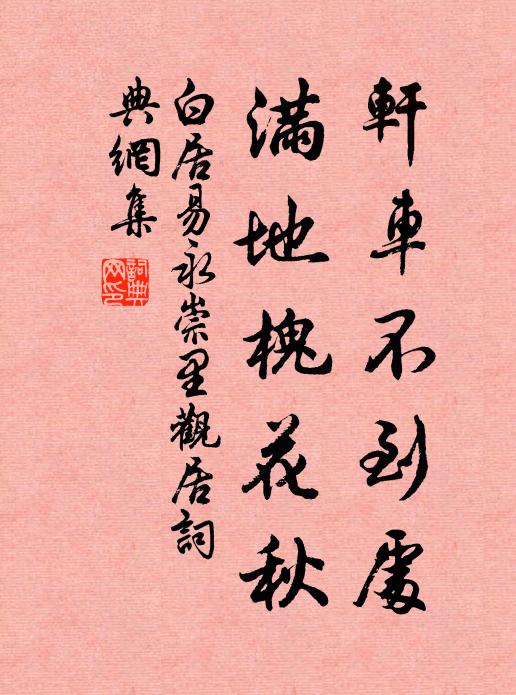 軒車不到處
滿地槐花秋
白居易永崇里觀居詞
典網集
詞典
网印